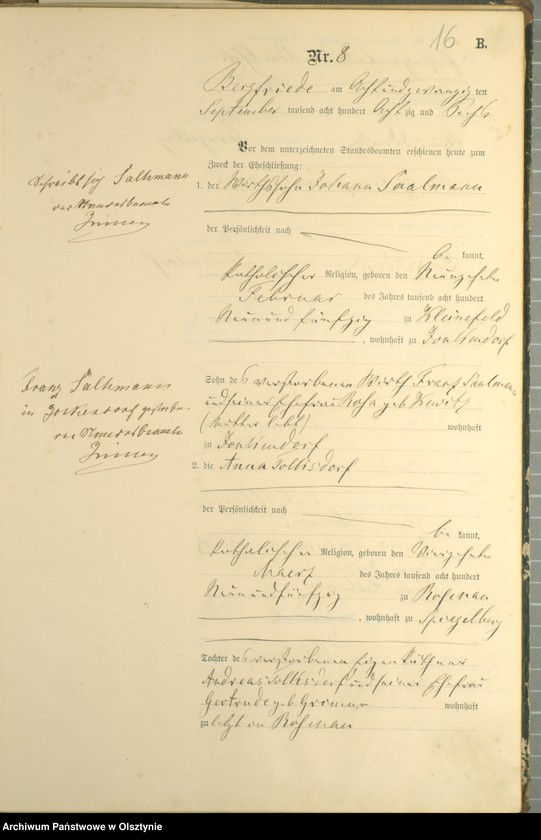 16
B.
Nr. 8
Bergfriede am Acht und zwanzig ten
September tausend acht hundert Acht zig und Sechs
Vor dem unterzeichneten Standesbeamten erschienen heute zum
Zweck der Eheschließung:
1. der Wirthssohn Johann Saalmann
der Persönlichkeit nach
be kannt,
katholischer Religion, geboren den Neunzehnten
Februar des Jahres tausend acht hundert
Neun und fünfzig zu Kleinefeld
, wohnhaft zu Jonkendorf
Sohn des verstorbenen Wirth Franz Saalmann
und seiner Ehefrau Rosa geb
(Mutter lebt) wohnhaft
zu Jonkendorf
2. die Anna Tolksdorf
der Persönlichkeit nach
be kannt,
katholischer Religion, geboren den Vierzehnten
Maerz des Jahres tausend acht hundert
Neun und fünfzig zu Rosenau
, wohnhaft zu Spiegelberg
Tochter des verstorbenen Eigenkäthner
Andreas Tolksdorf und seiner Ehefrau
Gertrude geb wohnhaft
zuletzt in Rosenau
Schreibt sich Salhmann
der Standesbeamte
Franz Salhmann
in Jonkendorf gestorben.
der Standesbeamte
Archiwum Państwowe w Olsztynie